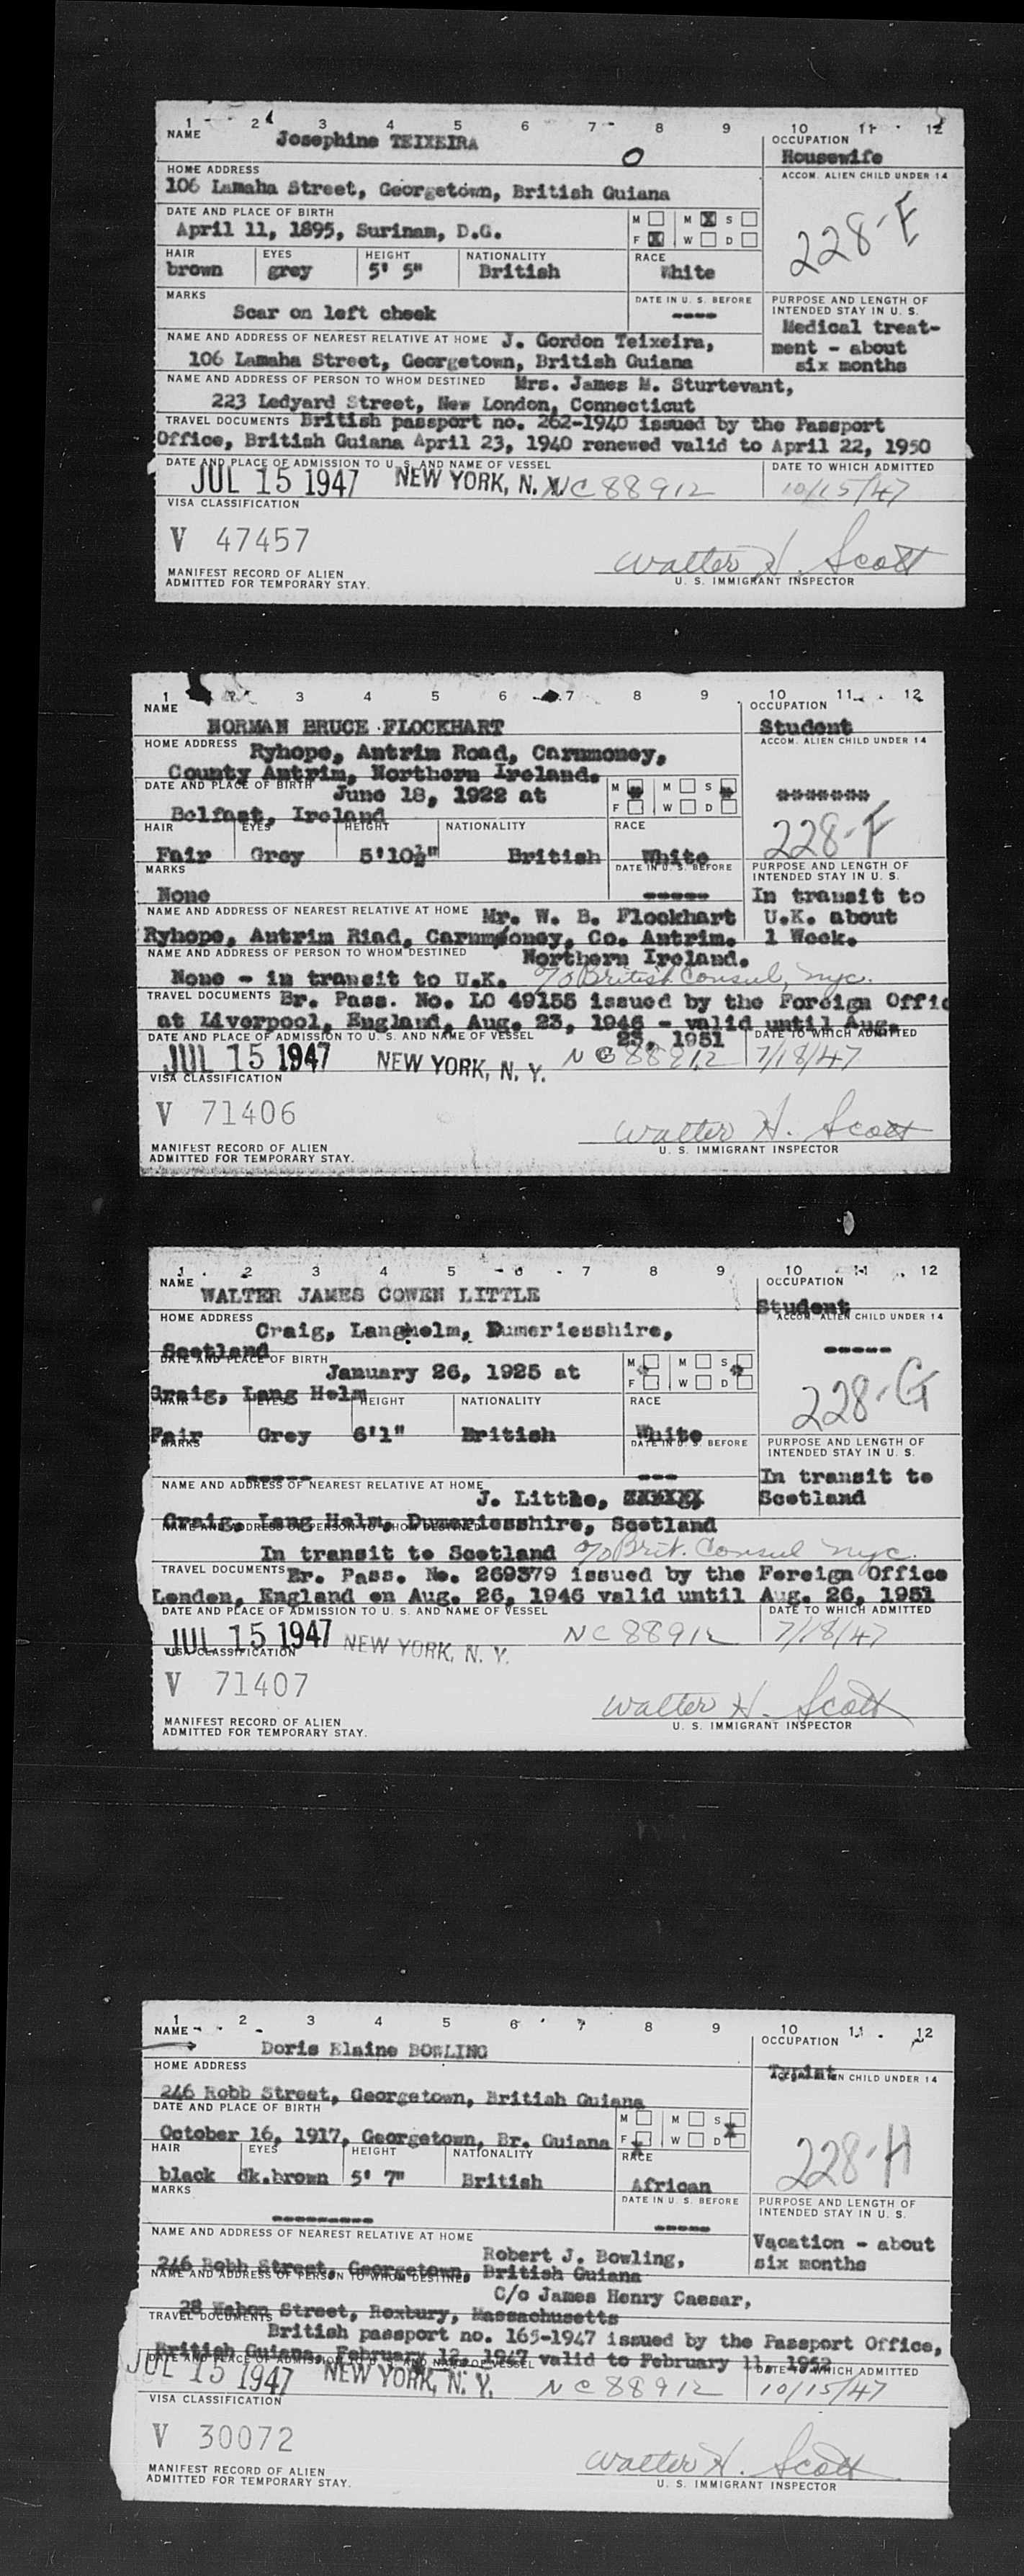 1 2 3 4 5 6 7 8 9 10 11 12
NAME Josephine TEIXEIRA
OCCUPATION
Housewife
HOME ADDRESS
106 Lamaha Street, Georgetown, British Guiana
ACCOM. ALIEN CHILD UNDER 14
228-E
DATE AND PLACE OF BIRTH
April 11, 1895, Surinam, D.G.
M M X S
F X W D
HAIR EYES HEIGHT NATIONALITY RACE
brown grey 5' 5" British White
MARKS
Scar on left cheek
DATE IN U. S. BEFORE
----
PURPOSE AND LENGTH OF
INTENDED STAY IN U. S.
Medical treat-
ment - about
six months
NAME AND ADDRESS OF NEAREST RELATIVE AT HOME J. Gordon Teixeira,
106 Lamaha Street, Georgetown, British Guiana
NAME AND ADDRESS OF PERSON TO WHOM DESTINED Mrs. James M. Sturtevant,
223 Ledyard Street, New London, Connecticut
TRAVEL DOCUMENTS British passport no. 262-1940 issued by the Passport
Office, British Guiana April 23, 1940 renewed valid to April 22, 1950
DATE AND PLACE OF ADMISSION TO U. S. AND NAME OF VESSEL
DATE TO WHICH ADMITTED
JUL 15 1947 NEW YORK, N. Y. NC 88912 10/15/47
VISA CLASSIFICATION
V 47457
Walter H. Scott
MANIFEST RECORD OF ALIEN
ADMITTED FOR TEMPORARY STAY.
U. S. IMMIGRANT INSPECTOR
1 2 3 4 5 6 7 8 9 10 11 12
NAME
NORMAN BRUCE FLOCKHART
OCCUPATION
Student
HOME ADDRESS Ryhope, Antrim Road, Carnmoney,
County Antrim, Northern Ireland.
ACCOM. ALIEN CHILD UNDER 14
*******
228-F
DATE AND PLACE OF BIRTH June 18, 1922 at
Belfast, Ireland
M M S
F W D
HAIR EYES HEIGHT NATIONALITY RACE
Fair Grey 5'10½" British White
MARKS
None
DATE IN U. S. BEFORE
-----
PURPOSE AND LENGTH OF
INTENDED STAY IN U. S.
In transit to
U.K. about
1 Week.
NAME AND ADDRESS OF NEAREST RELATIVE AT HOME Mr. W. B. Flockhart
Ryhope, Antrim Riad, Carnmoney, Co. Antrim.
NAME AND ADDRESS OF PERSON TO WHOM DESTINED Northern Ireland.
None - in transit to U.K. c/o British Consul, nyc.
TRAVEL DOCUMENTS Br. Pass. No. LO 49155 issued by the Foreign Offic
at Liverpool, England, Aug. 23, 1946 - valid until Aug.
23, 1951
DATE AND PLACE OF ADMISSION TO U. S. AND NAME OF VESSEL
DATE TO WHICH ADMITTED
JUL 15 1947 NEW YORK, N. Y. NC 88912 7/18/47
VISA CLASSIFICATION
V 71406
Walter H. Scott
MANIFEST RECORD OF ALIEN
ADMITTED FOR TEMPORARY STAY.
U. S. IMMIGRANT INSPECTOR
1 2 3 4 5 6 7 8 9 10 11 12
NAME
WALTER JAMES COWEN LITTLE
OCCUPATION
Student
HOME ADDRESS
Craig, Langholm, Dumeriesshire,
Scotland
ACCOM. ALIEN CHILD UNDER 14
-----
228-G
DATE AND PLACE OF BIRTH
January 26, 1925 at
Craig, Lang Holm
M M S
F W D
HAIR EYES HEIGHT NATIONALITY RACE
Fair Grey 6'1" British White
MARKS
-----
DATE IN U. S. BEFORE
---
PURPOSE AND LENGTH OF
INTENDED STAY IN U. S.
In transit to
Scotland
NAME AND ADDRESS OF NEAREST RELATIVE AT HOME
J. Little,
Craig, Lang Holm, Dumeriesshire, Scotland
NAME AND ADDRESS OF PERSON TO WHOM DESTINED
In transit to Scotland c/o Brit. Consul nyc.
TRAVEL DOCUMENTS Br. Pass. No. 269379 issued by the Foreign Office
London, England on Aug. 26, 1946 valid until Aug. 26, 1951
DATE AND PLACE OF ADMISSION TO U. S. AND NAME OF VESSEL
DATE TO WHICH ADMITTED
JUL 15 1947 NEW YORK, N. Y. NC 88912 7/18/47
VISA CLASSIFICATION
V 71407
Walter H. Scott
MANIFEST RECORD OF ALIEN
ADMITTED FOR TEMPORARY STAY.
U. S. IMMIGRANT INSPECTOR
1 2 3 4 5 6 7 8 9 10 11 12
NAME
Doris Elaine BOWLING
OCCUPATION
Typist
HOME ADDRESS
246 Robb Street, Georgetown, British Guiana
ACCOM. ALIEN CHILD UNDER 14
228-H
DATE AND PLACE OF BIRTH
October 16, 1917, Georgetown, Br. Guiana
M M S
F W D
HAIR EYES HEIGHT NATIONALITY RACE
black dk.brown 5' 7" British African
MARKS
---------
DATE IN U. S. BEFORE
-----
PURPOSE AND LENGTH OF
INTENDED STAY IN U. S.
Vacation - about
six months
NAME AND ADDRESS OF NEAREST RELATIVE AT HOME
Robert J. Bowling,
246 Robb Street, Georgetown, British Guiana
NAME AND ADDRESS OF PERSON TO WHOM DESTINED
C/o James Henry Caesar,
28 Street, Roxbury, Massachusetts
TRAVEL DOCUMENTS
British passport no. 165-1947 issued by the Passport Office,
British Guiana, February 12, 1947 valid to February 11, 1952
DATE AND PLACE OF ADMISSION TO U. S. AND NAME OF VESSEL
DATE TO WHICH ADMITTED
JUL 15 1947 NEW YORK, N. Y. NC 88912 10/15/47
VISA CLASSIFICATION
V 30072
Walter H. Scott
MANIFEST RECORD OF ALIEN
ADMITTED FOR TEMPORARY STAY.
U. S. IMMIGRANT INSPECTOR